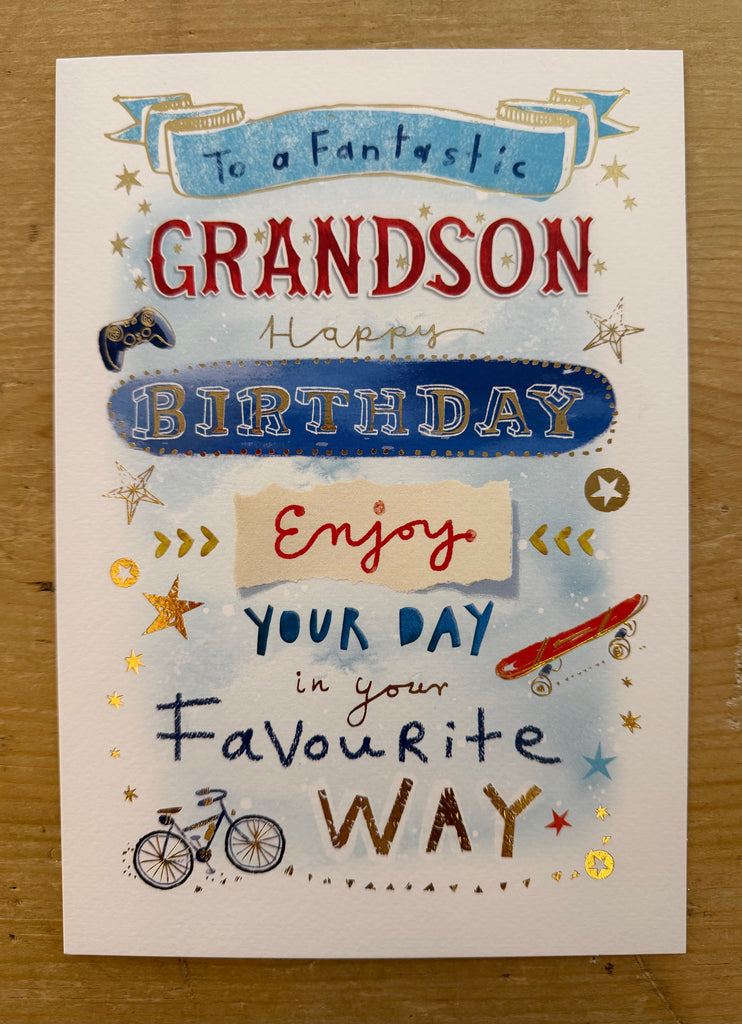 To a Fantastic
GRANDSON
Happy
BIRTHDAY
Enjoy
YOUR DAY
in your
FavouRite
WAY